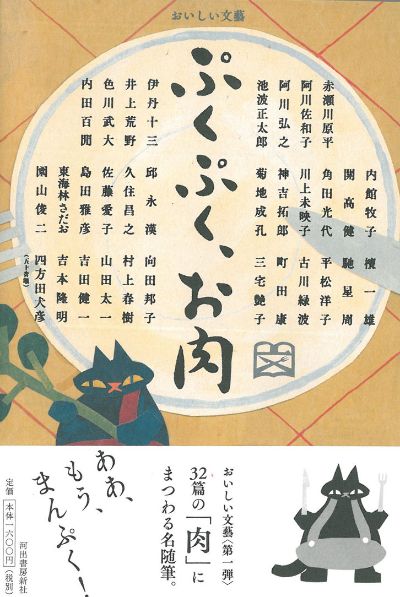 おいしい文藝
ぷくぷく、お肉
内館牧子 檀一雄
開高健 馳星周
赤瀬川原平 角田光代 平松洋子
阿川佐和子 川上未映子 古川緑波
阿川弘之 神吉拓郎 町田康
池波正太郎 菊地成孔 三宅艶子
伊丹十三 邱永漢 向田邦子
井上荒野 久住昌之 村上春樹
色川武大 佐藤愛子 山田太一
内田百閒 島田雅彦 吉田健一
東海林さだお 吉本隆明
園山俊二 四方田犬彦
(五十音順)
おいしい文藝〈第一弾〉
32篇の「肉」に
まつわる名随筆。
ああ、
もう、
まんぷく!
河出書房新社
定価 本体一六〇〇円(税別)